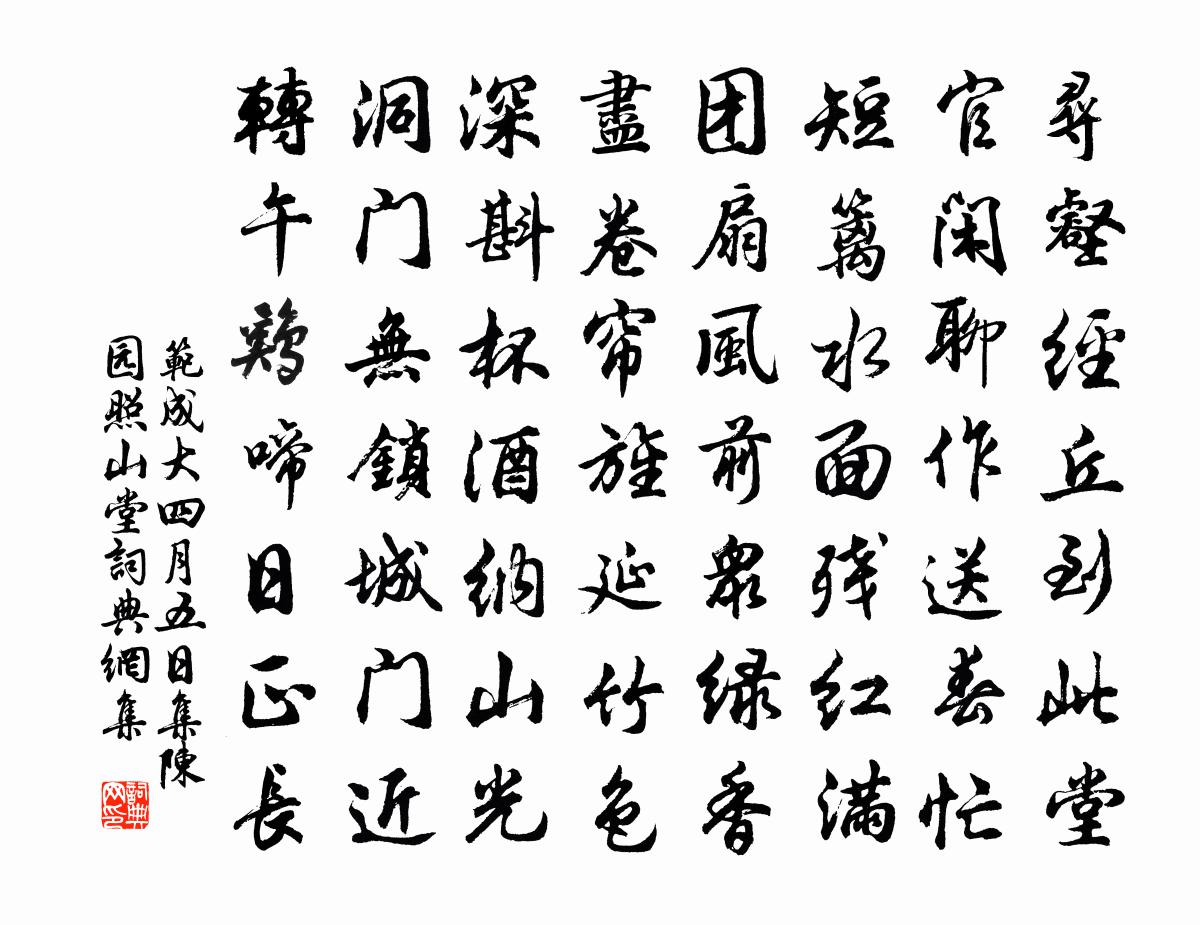 尋壑經丘到此堂
官閑聊作送春忙
短篱水面残红满
团扇風前衆绿香
盡卷帘旌延竹色
深斟杯酒纳山光
洞门無鎖城门近
轉午鷄啼日正長
範成大四月五日集陳
园照山堂詞典網集
詞典网印